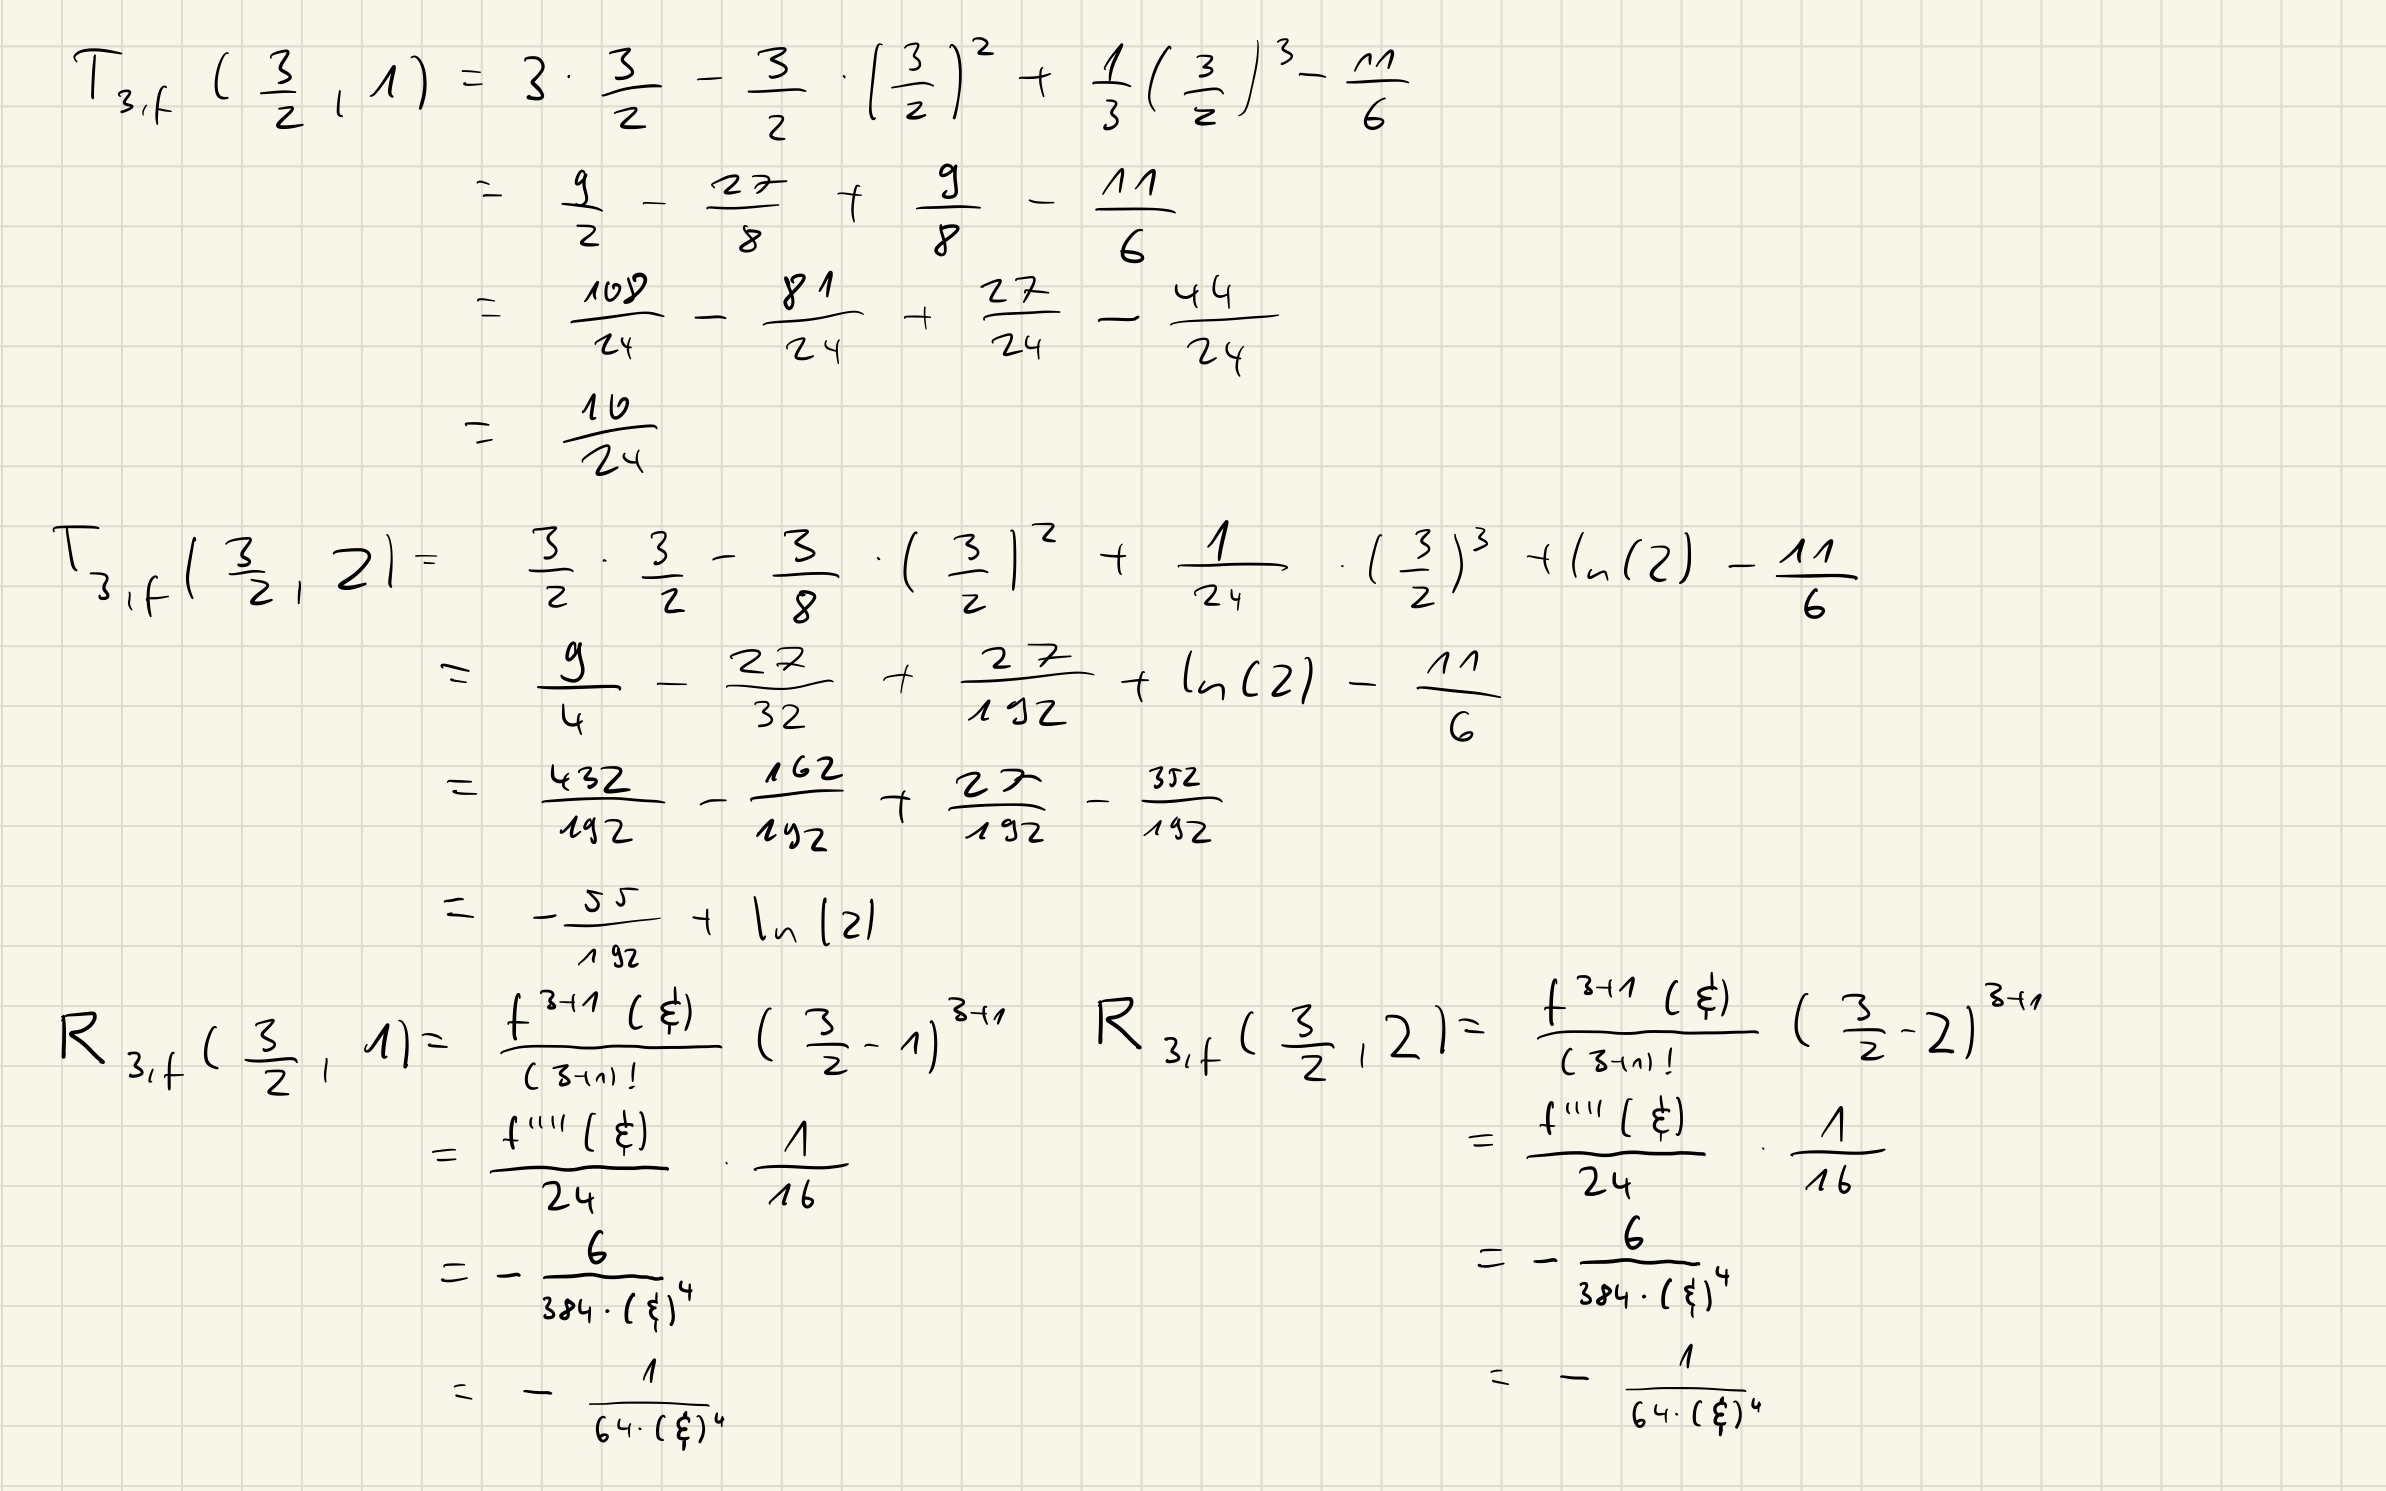 T_{3,f} (3/2, 1) = 3 · 3/2 − 3/2 · (3/2)² + 1/3 (3/2)³ − 11/6
= 9/2 − 27/8 + 9/8 − 11/6
= 108/24 − 81/24 + 27/24 − 44/24
= 10/24
T_{3,f} (3/2, 2) = 3/2 · 3/2 − 3/8 · (3/2)² + 1/24 · (3/2)³ + ln(2) − 11/6
= 9/4 − 27/32 + 27/192 + ln(2) − 11/6
= 432/192 − 162/192 + 27/192 − 352/192
= − 55/192 + ln(2)
R_{3,f} (3/2, 1) = f^{3+1}(ξ)/(3+1)! (3/2 − 1)^{3+1} R_{3,f} (3/2, 2) = f^{3+1}(ξ)/(3+1)! (3/2 − 2)^{3+1}
= f''''(ξ)/24 · 1/16 = f''''(ξ)/24 · 1/16
= − 6/(384 · (ξ)⁴) = − 6/(384 · (ξ)⁴)
= − 1/(64 · (ξ)⁴) = − 1/(64 · (ξ)⁴)